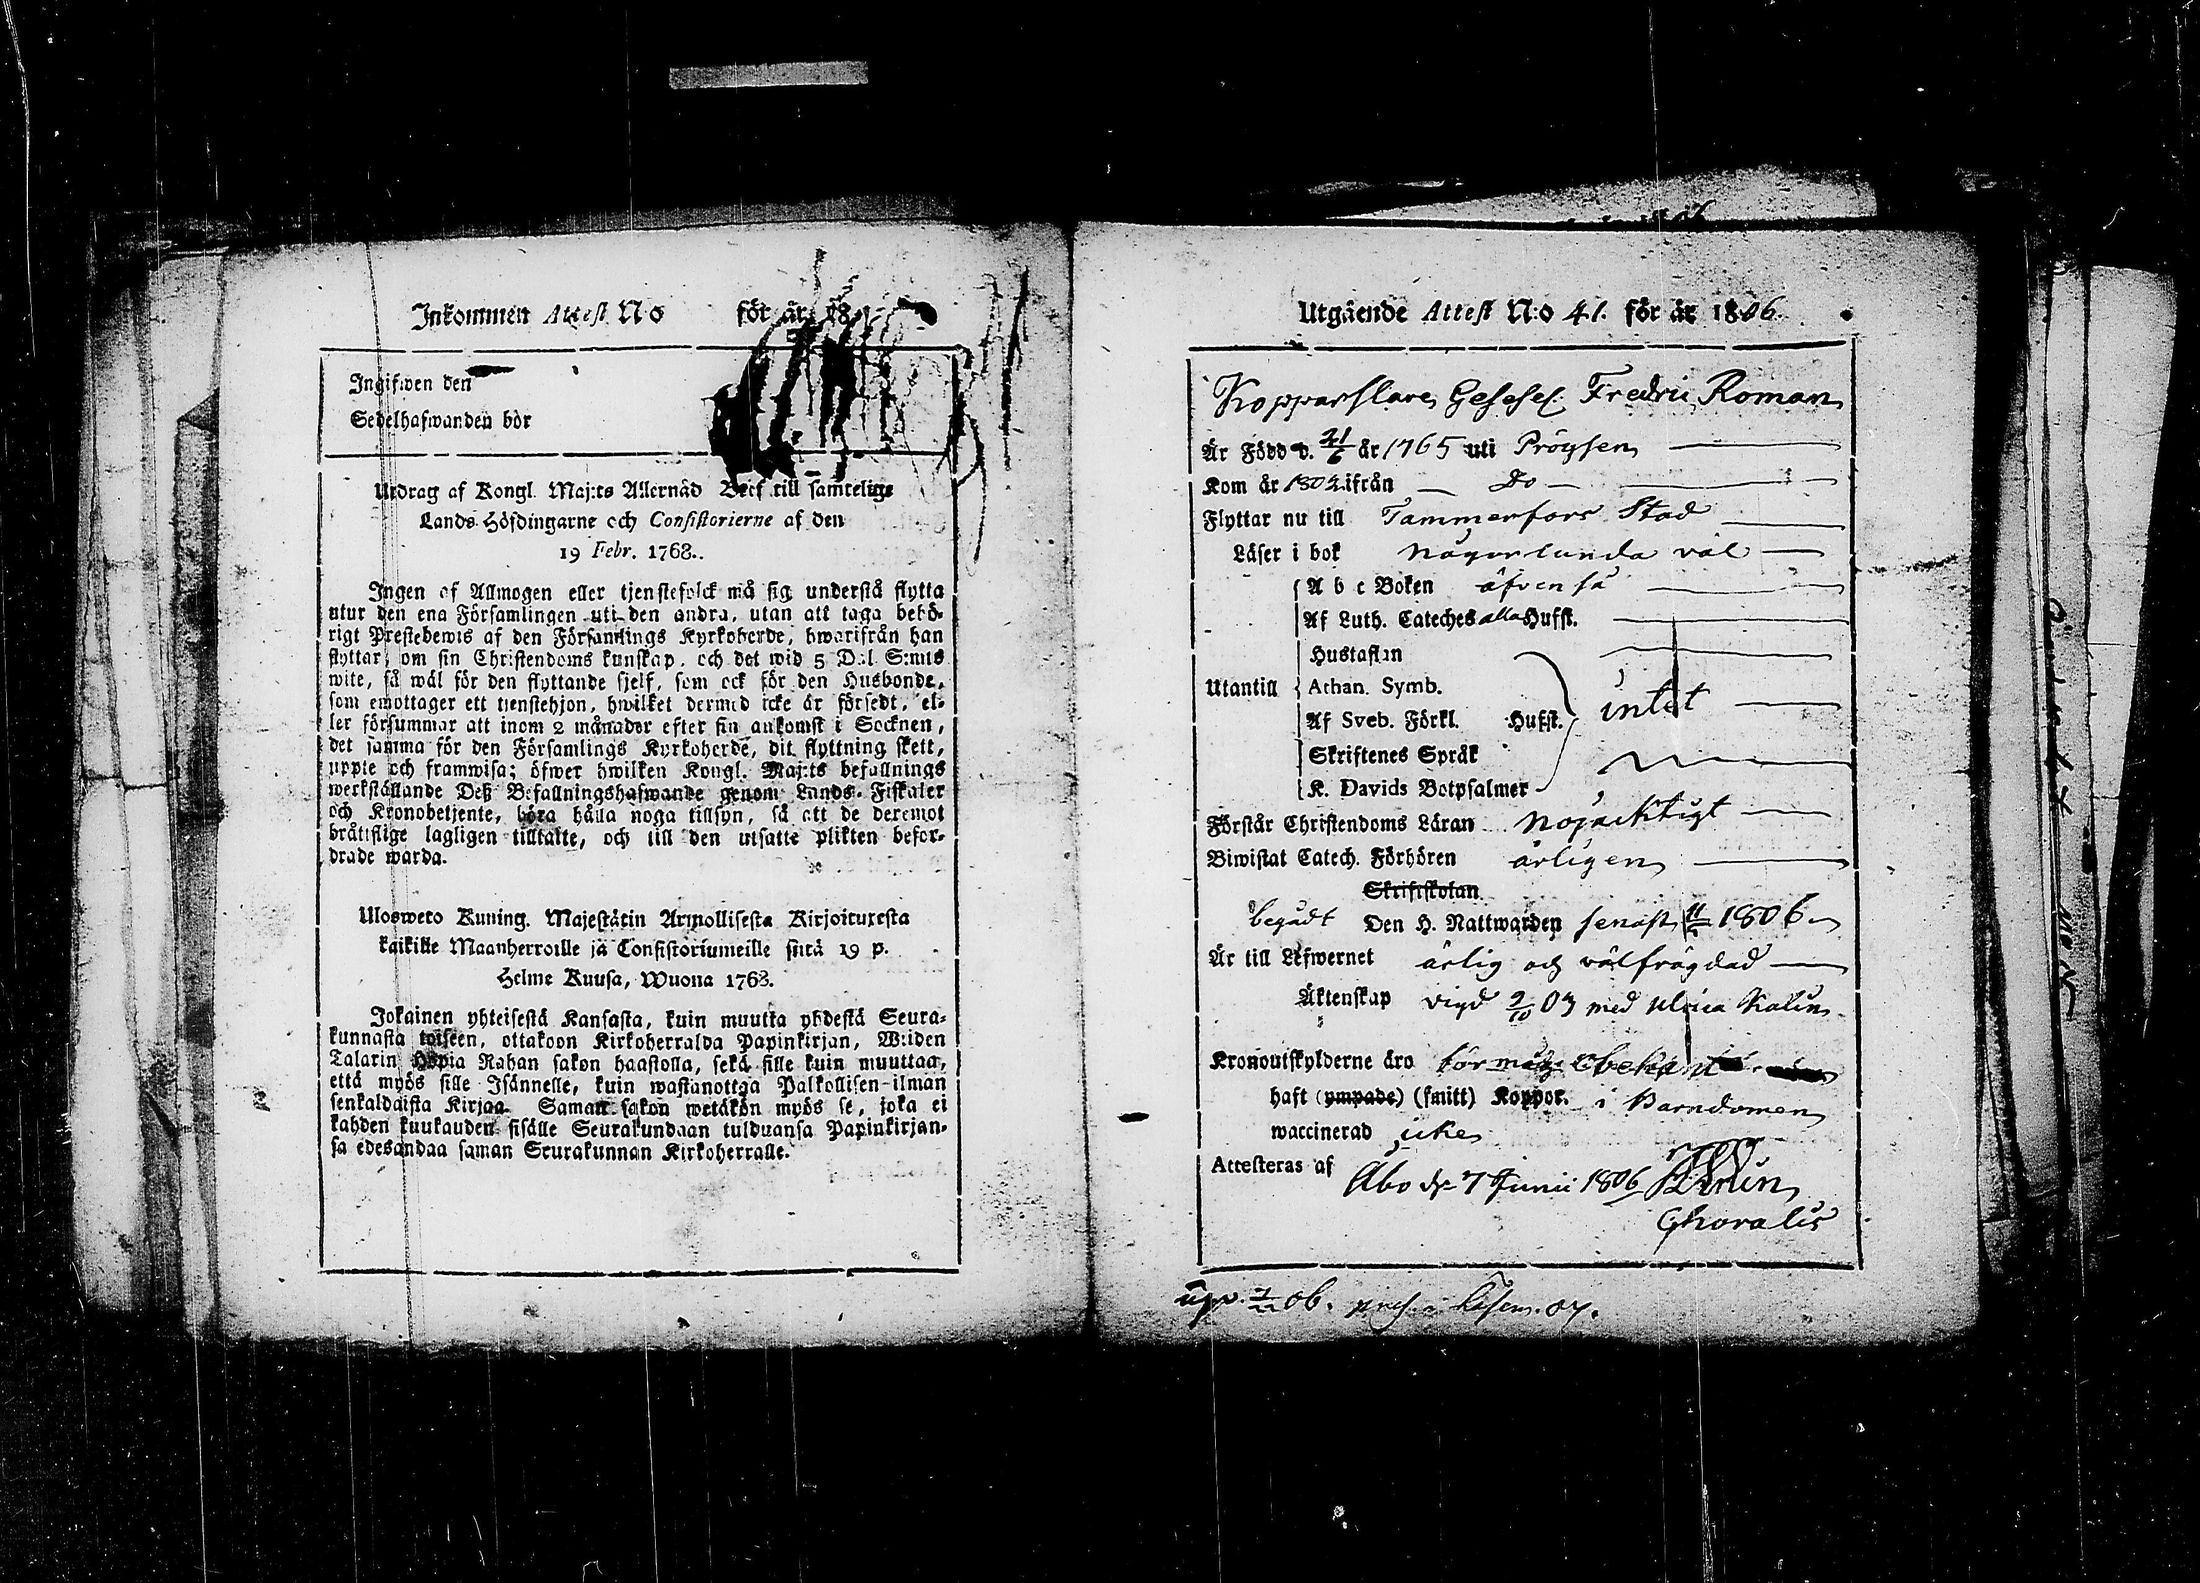 Inkommen Attest No för år 18
Ingifwen den
Sedelhafwanden bör
Utdrag af Kongl. Maj:ts Allernåd Bref till samtelige
Lands-Höfdingarne och Consistorierne af den
19 Febr. 1768.
Ingen af Allmogen eller tjenstefolck må sig understå flytta
utur den ena Församlingen uti den andra, utan att taga behö-
rigt Prestebewis af den Församlings Kyrkoherde, hwarifrån han
flyttar, om sin Christendoms kunskap, och det wid 5 Dal. S:mts
wite, så wäl för den flyttande sjelf, som ock för den Husbonde,
som emottager ett tjenstehjon, hwilket dermed icke är försedt, el-
ler försummar att inom 2 månader efter sin ankomst i Socknen,
det samma för den Församlings Kyrkoherde, dit flyttning skett,
uppte och framwisa; öfwer hwilken Kongl. Maj:ts befallnings
werkställande Deß Befallningshafwande genom Lands-Fiskaler
och Kronobetjente, böra hålla noga tillsyn, så att de deremot
bråtislige lagligen tilltalte, och till den utsatte plikten befor-
drade warda.
Ulosweto Kuning. Majestätin Armollisesta Kirjoituxesta
kaikille Maanherroille ja Consistoriumeille siitä 19 p.
Helme Kuusa, Wuona 1768.
Jokainen yhteisestä Kansasta, kuin muutta yhdestä Seura-
kunnasta toiseen, ottakoon Kirkoherralda Papinkirjan, Wiiden
Talarin Hopia Rahan sakon haastolla, sekä sille kuin muuttaa,
että myös sille Isännelle, kuin wastanottaa Palkollisen ilman
senkaldaista Kirjaa. Saman sakon wetäkön myös se, joka ei
kahden kuukauden sisälle Seurakundaan tulduansa Papinkirjan-
sa edesandaa saman Seurakunnan Kirkoherralle.
Utgående Attest N:o 41. för år 1806.
Kopparslare Gesesel Fredric Roman
Är Född d. 21/6 år 1765 uti Pröysen
Kom år 1802 ifrån Do
Flyttar nu till Tammerfors Stad
Läser i bok någorlunda väl
A b c Boken äfven så
Af Luth. Cateches alla Hufst.
Hustaflan
Utantill Athan. Symb.
Af Sveb. Förkl. Hufst. intet
Skriftenes Språk
K. Davids Botpsalmer
Förstår Christendoms Läran nöjacktigt
Biwistat Catech. Förhören årligen
Skriftskolan
begådt Den H. Nattwarden senast 1806
Är till Lefwernet ärlig och välfrägdad
Äktenskap vigd 2/10 03 med Ulrica Kalin
Kronoutskylderne äro
haft (ympade) (smitt) Koppor. i Barndomen
waccinerad icke
Attesteras af Åbo d. 7 Junii 1806
upp. 06. 07.